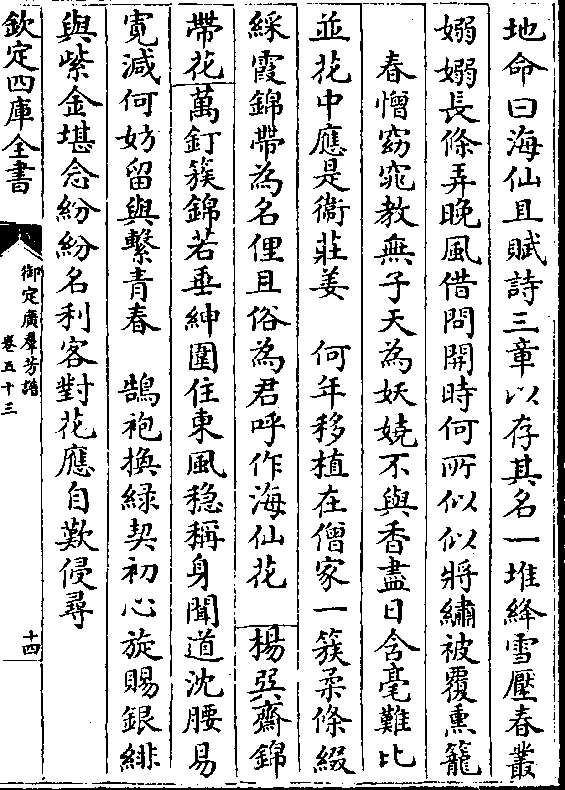 地命曰海仙且賦詩三章以存其名一堆絳雪壓春叢
嫋嫋長條弄晚風借問開時何所似似將繡被覆熏籠
春憎窈窕教無子天為妖嬈不與香盡日含毫難比
並花中應是衛莊姜　何年移植在僧家一簇柔條綴
綵霞錦帶為名俚且俗為君呼作海仙花　楊巽齋錦
帶花萬釘簇錦若垂紳圍住東風穏稱身聞道沈腰易
寛減何妨留與繫青春　鵠袍換緑契初心旋賜銀緋
與紫金堪念紛紛名利客對花應自歎侵尋
欽定四庫全書
御定廣羣芳譜
卷五十三
十四